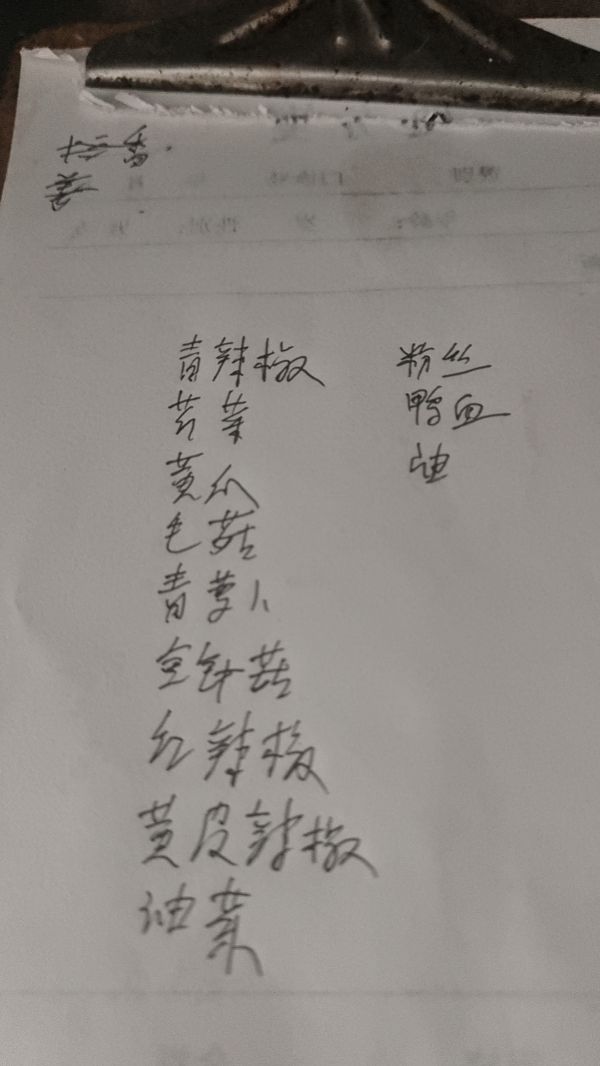 青辣椒
芹菜
黄瓜
毛菇
青萝卜
金针菇
红辣椒
黄皮辣椒
油菜
粉丝
鸭血
油